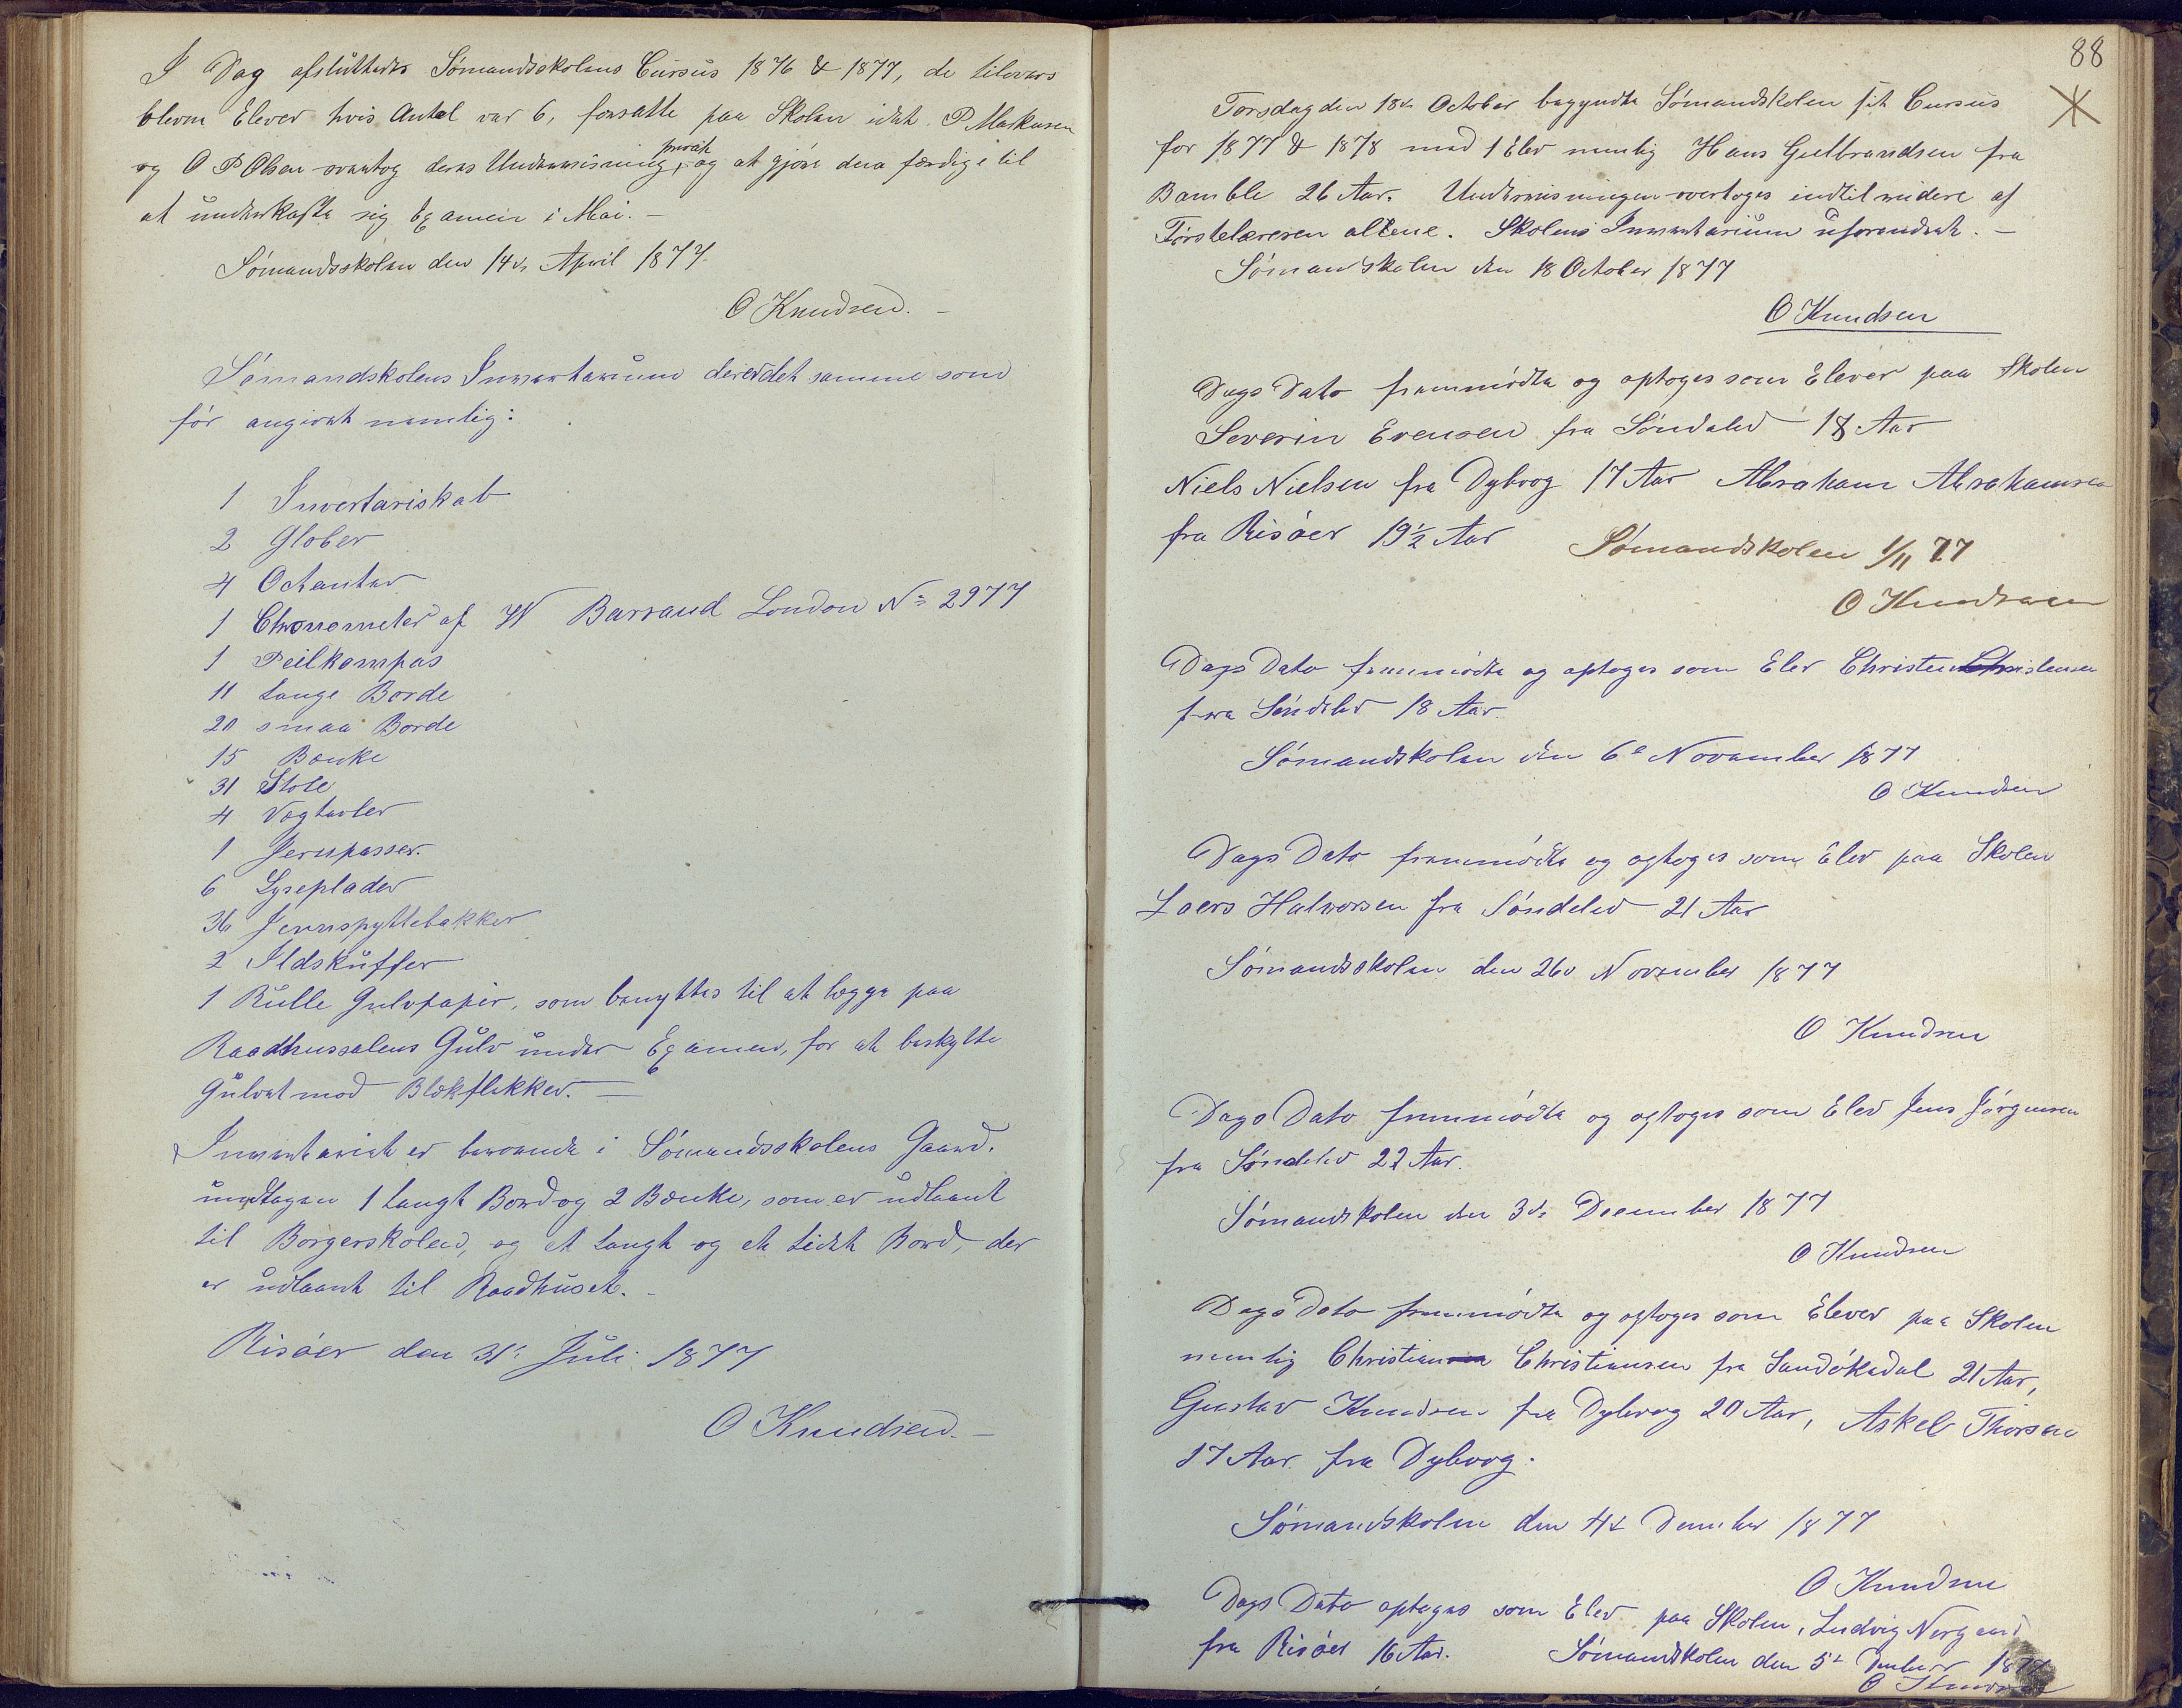 I Dag afsluttedes Sömandsskolens Cursus 1876 & 1877, de tilovers
blevne Elever hvis Antal var 6, forsatte paa Skolen idet P Markusen
og O P Olsen overtog deres Undervisning privat, og at gjöre dem færdige til
at underkaste sig Examen i Mai. –
Sömandsskolen den 14de April 1877.
O Knudsen. –
Sömandskolens Inventarium der er det samme som
för angivet nemlig:
1 Inventariskab
2 Glober
4 Octanter
1 Chronometer af W Barraud London No 2977
1 Peilkompas
11 Lange Borde
20 smaa Borde
15 Bænke
31 Stole
4 Vægtavler
1 Jernpasser.
6 Lyseplader
36 Jernspyttebakker
2 Ildskuffer
1 Rulle Gulvpapir, som benyttes til at lægge paa
Raadhussalens Gulv under Examen, for at beskytte
Gulvet mod Blækflekker. –
Inventariet er beroende i Sömandsskolens Gaard.
undtagen 1 langt Bord og 2 Bænke, som er udlaant
til Borgerskolen, og et langt og et lidet Bord, der
er udlaant til Raadhuset. –
Risöer den 31te Juli 1877
O Knudsen. –
88
Torsdag den 18de October begyndte Sömandskolen sit Cursus
for 1877 & 1878 med 1 Elev nemlig Hans Gulbrandsen fra
Bamble 26 Aar. Undervisningen overtoges indtil videre af
Förstelæreren allene. Skolens Inventarium uforandret. –
Sömandskolen den 18 October 1877
O Knudsen
Dags Dato fremmödte og optoges som Elever paa Skolen
Severin Evensen fra Söndeled 18 Aar
Niels Nielsen fra Dybvog 17 Aar Abraham Abrahamsen
fra Risöer 19½ Aar Sömandskolen 1/11 77
O Knudsen
Dags Dato fremmödte og optoges som Elev Christen Christensen
fra Söndeled 18 Aar.
Sömandskolen den 6te November 1877
O Knudsen
Dags Dato fremmödte og optoges som Elev paa Skolen
Laers Halvorsen fra Söndeled 21 Aar
Sömandsskolen den 26de November 1877
O Knudsen
Dags Dato fremmödte og optoges som Elev Jens Jörgensen
fra Söndeled 22 Aar.
Sömandskolen den 3de December 1877
O Knudsen
Dags Dato fremmödte og optoges som Elever paa Skolen
nemlig Christian Christiansen fra Sandökedal 21 Aar,
Gustav Knudsen fra Dybvog 20 Aar, Askel Thorsen
17 Aar fra Dybvog.
Sömandskolen den 4de December 1877
O Knudsen
Dags Dato optoges som Elev paa Skolen, Ludvig Norgaard
fra Risöer 16 Aar. Sömandskolen den 5te December 1877
O Knudsen